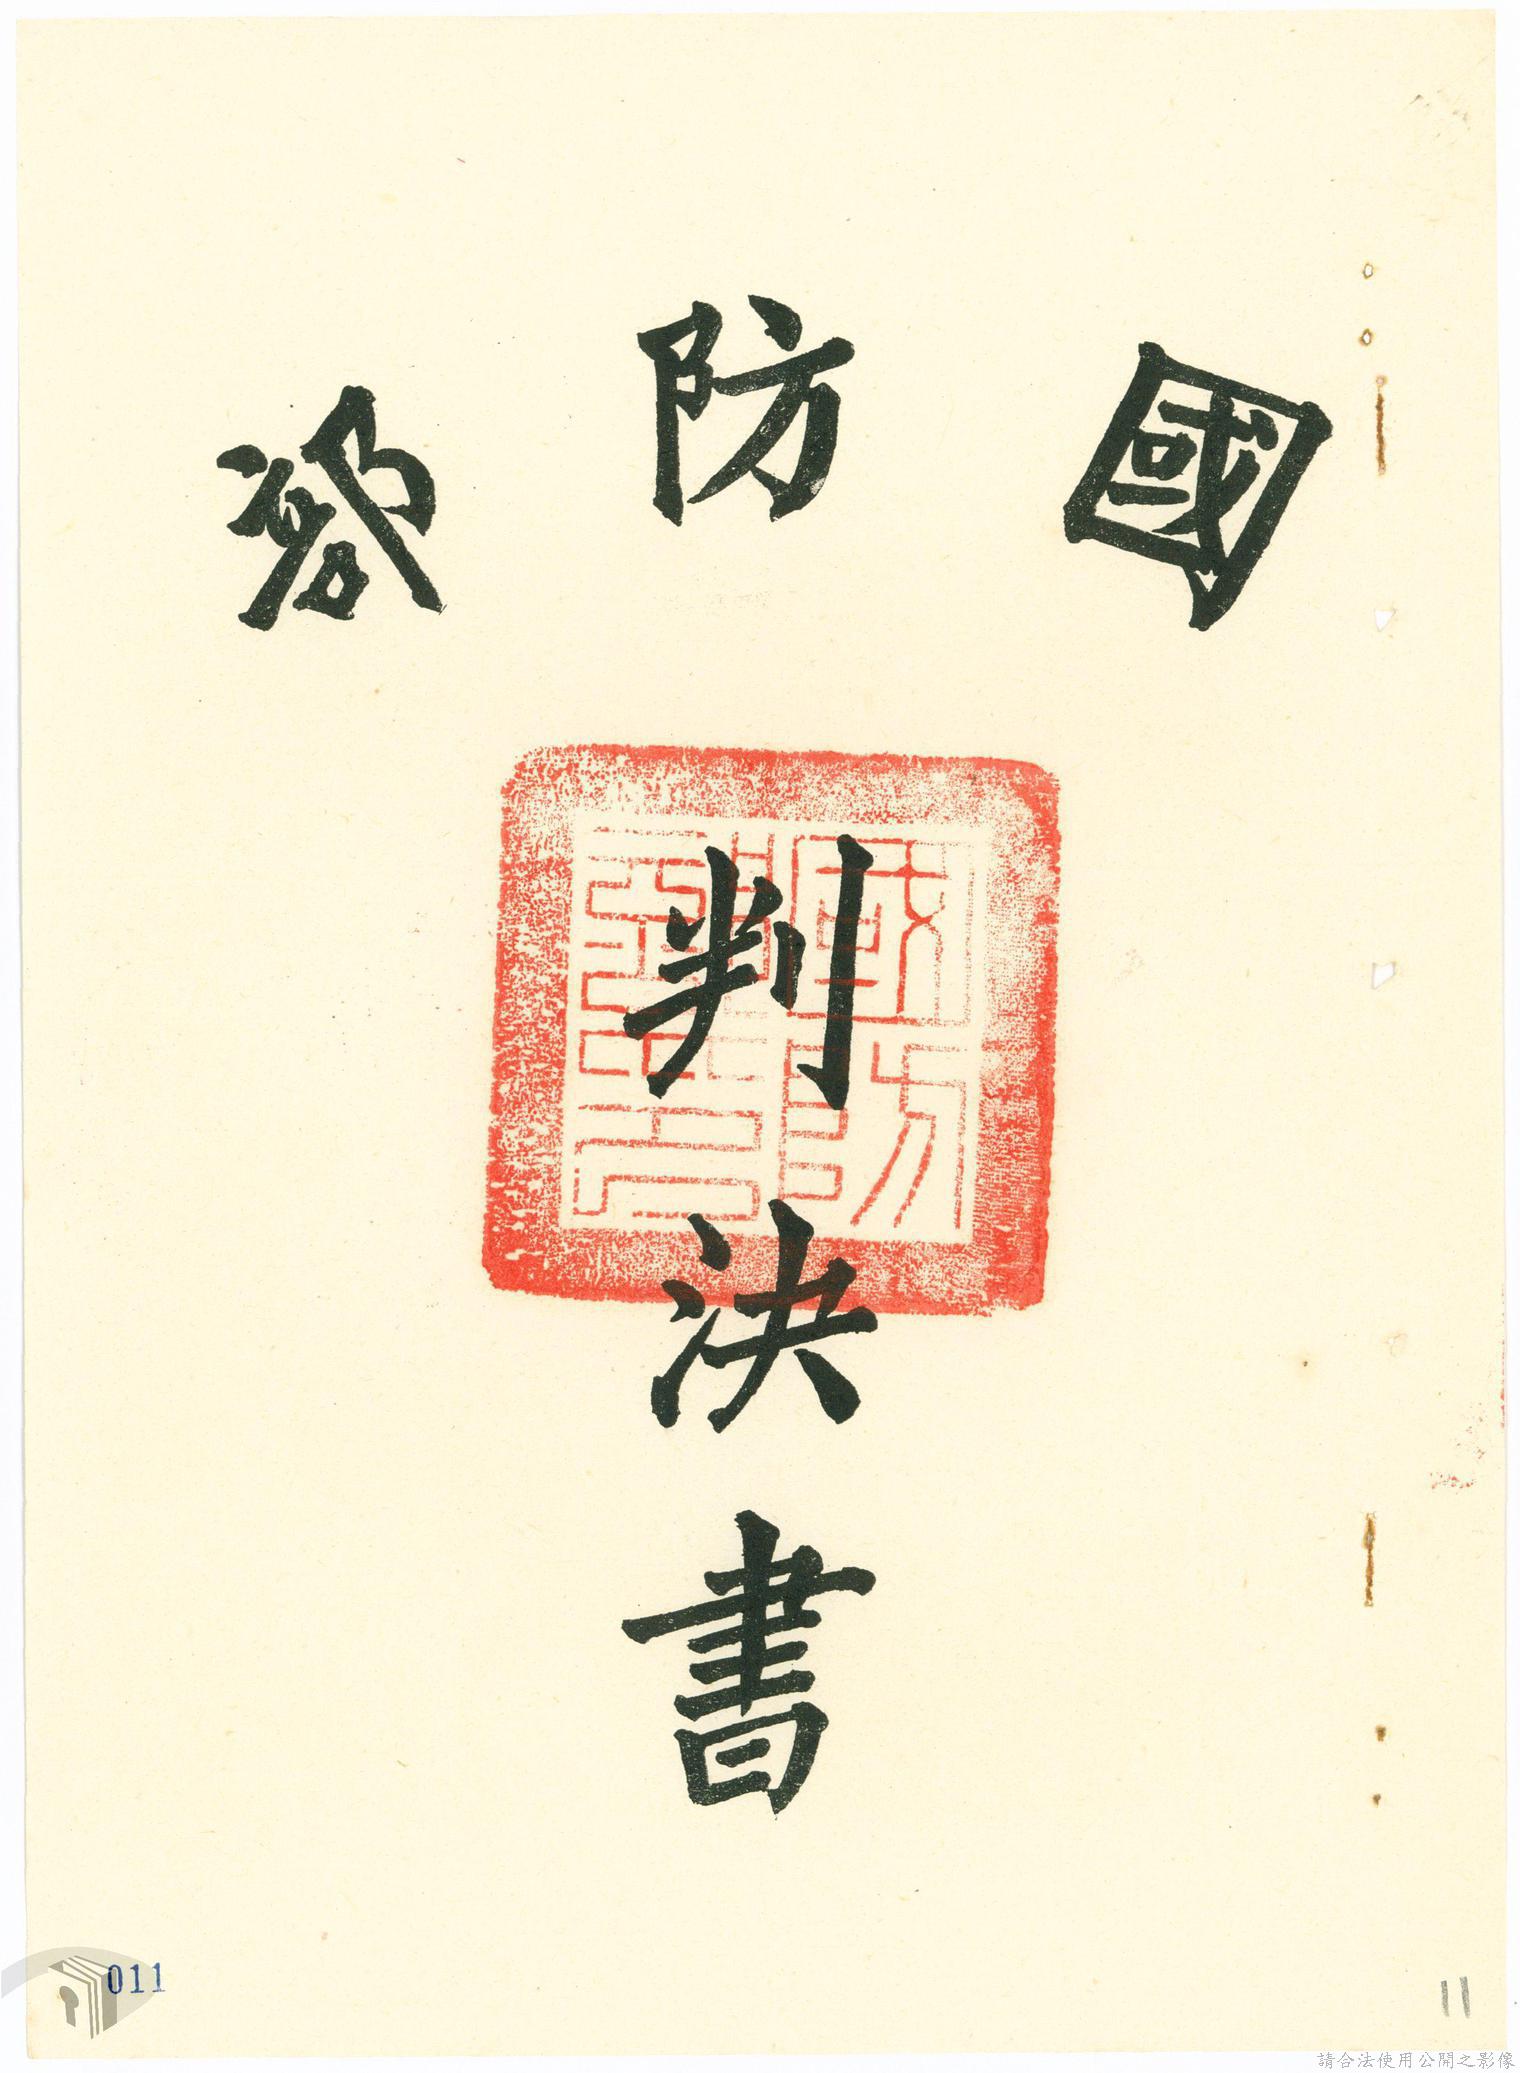 國防部
判決書
國防部印
011
11
請合法使用公開之影像